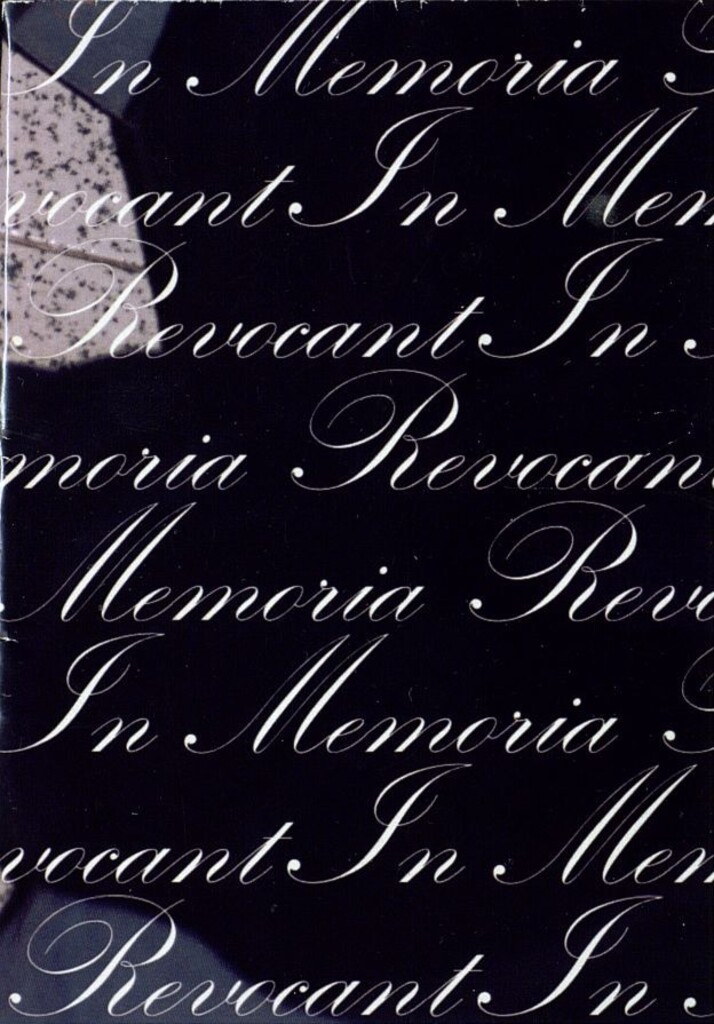 In Memoria
vocant In Mem
Revocant In
moria Revocant
Memoria Revo
In Memoria
vocant In Mem
Revocant In